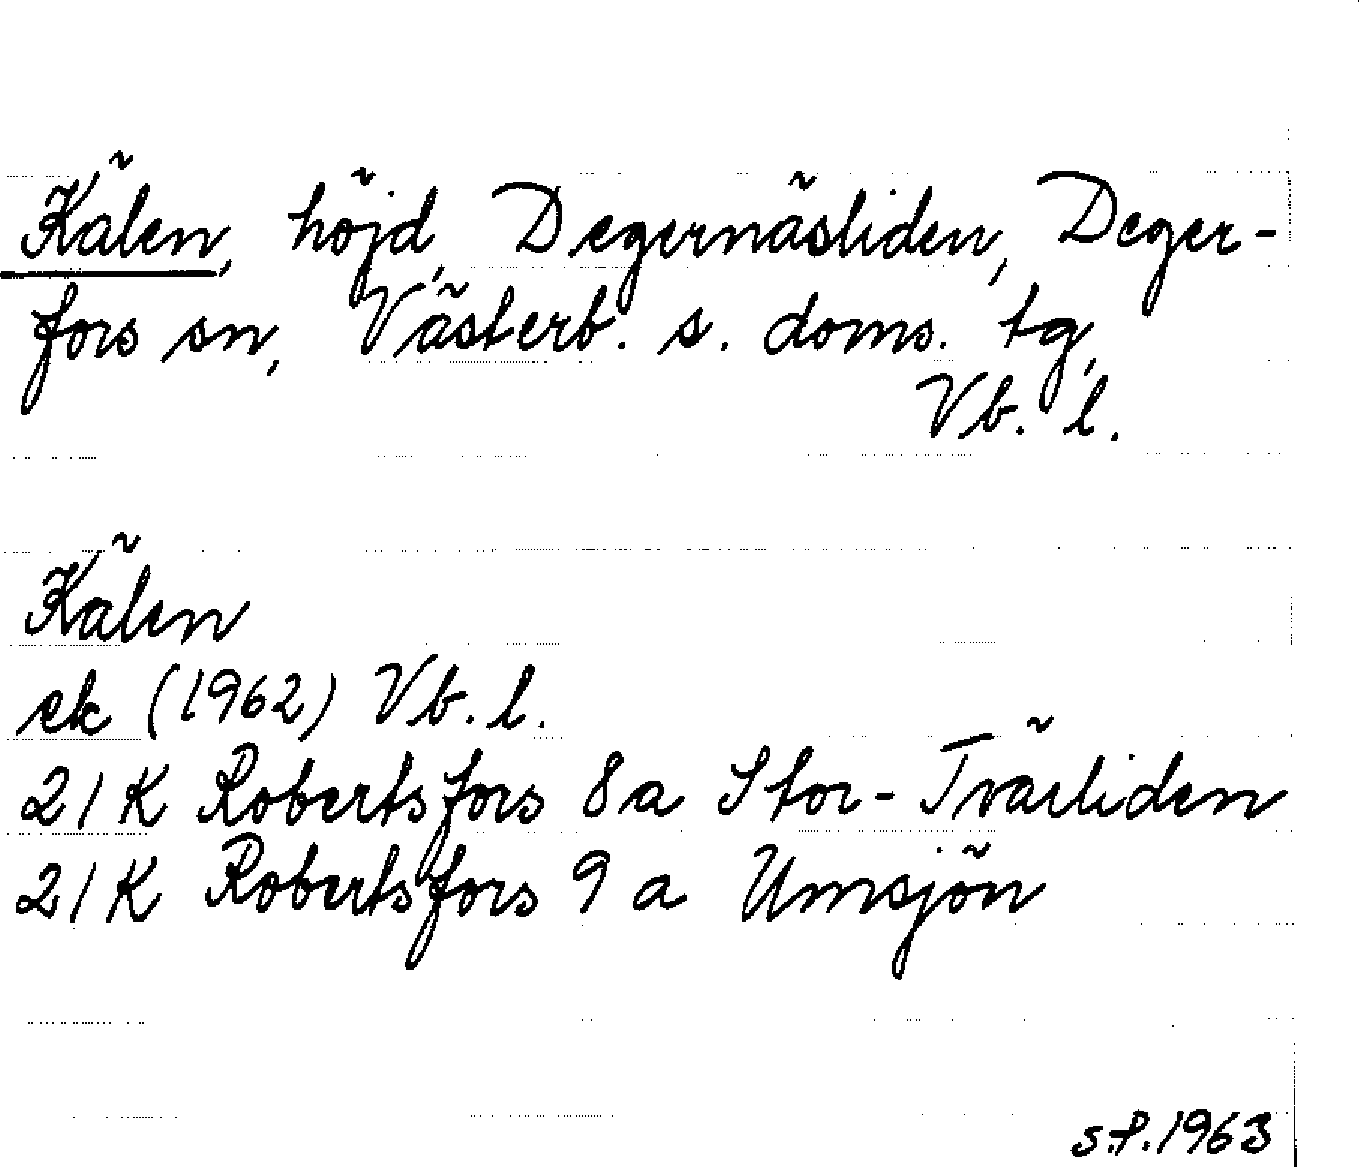 Kälen, höjd, Degernäsliden, Deger-
fors sn, Västerb. s. doms. tg,
Vb. l.
Kälen
ek (1962) Vb. l.
21K Robertsfors 8a Stor-Tvärliden
21K Robertsfors 9a Umsjön
S.P. 1963